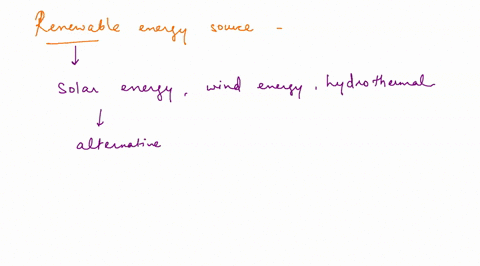 Renewable energy source -
Solar energy, wind energy, hydrothermal
alternative